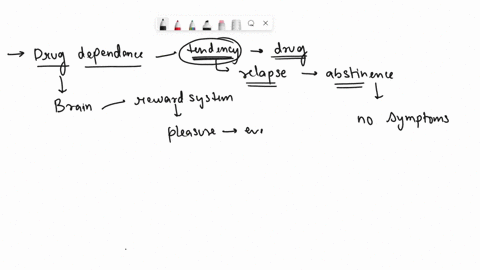 → Drug dependance — tendency → drug
relapse → abstinence
Brain — reward system
no symptoms
pleasure → ev